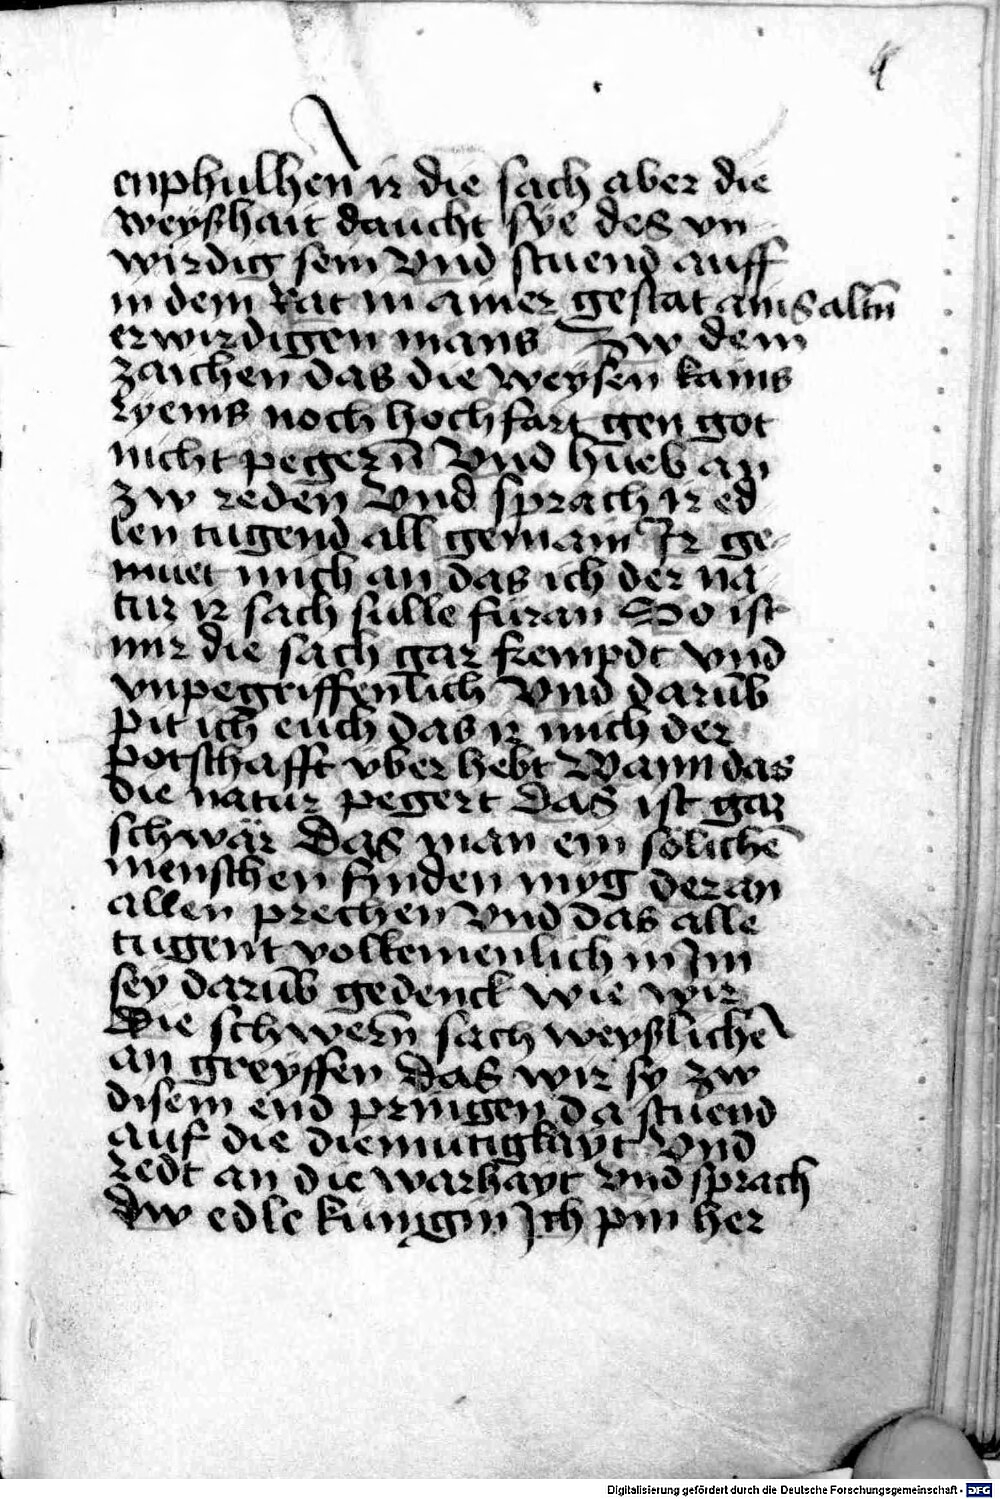 4
enphulhen ir die sach aber die
weyßhait daucht sye des vn
wirdig sein Vnd stuend auff
in dem Rat in ainer gestat ains altn̄
erwirdigen mans Zw dem
zaichen das die weysen kains
ryems noch hochfart gen got
nicht pegern̄ Vnd hueb an
zw reden Vnd sprach ir ed
len tugend all gemain Ir ge
muet mich an das ich der na
tur ir sach sulle furan So ist
mir die sach gar frempdt vnd
vnpegriffenlich Vnd darūb
pit ich euch das ir mich der
potschafft vber hebt Wann das
die natur pegert Das ist gar
schwär Das man ein sölichē
menschen finden myg der an
allen prechen Vnd das alle
tugent volkemenlich in Im
sey darūb gedenck wie wir
Die schwern̄ sach weyßlichē
an greyffen Das wir sy zw
disem end pringen da stuend
auf die diemutigkayt Vnd
redt an die warhayt Vnd sprach
Dw edle kungin Ich pin her
Digitalisierung gefördert durch die Deutsche Forschungsgemeinschaft - DFG